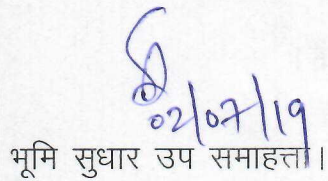 02/07/19
भूमि सुधार उप समाहर्ता।